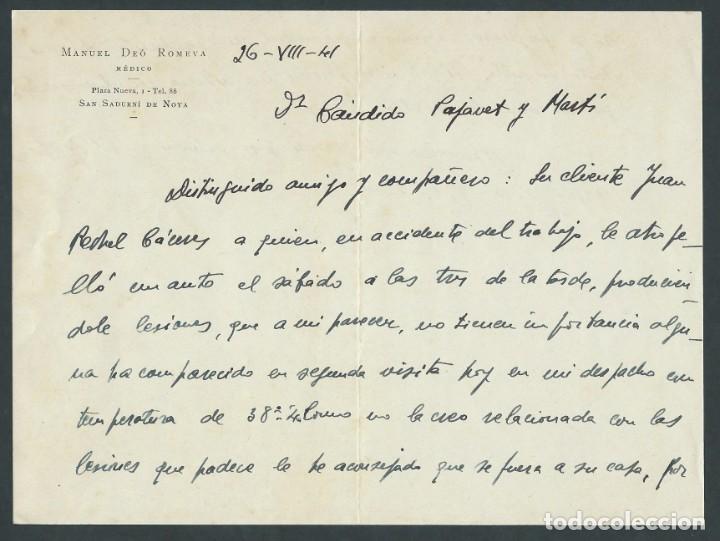 MANUEL DEÓ ROMEVA
MÉDICO
Plaza Nueva, 1 - Tel. 88
SAN SADURNÍ DE NOYA
26-VIII-41
Dr Cándido Pajavet y Martí
Distinguido amigo y compañero: Su cliente Juan
Cáceres a quien, en accidente del trabajo, le atrope-
lló un auto el sábado a las tres de la tarde, producien
dole lesiones, que a mi parecer, no tienen importancia algu-
na ha comparecido en segunda visita hoy en mi despacho con
temperatura de 38º 4. Como no la creo relacionada con las
lesiones que padece le he aconsejado que se fuera a su casa, por
todocoleccion